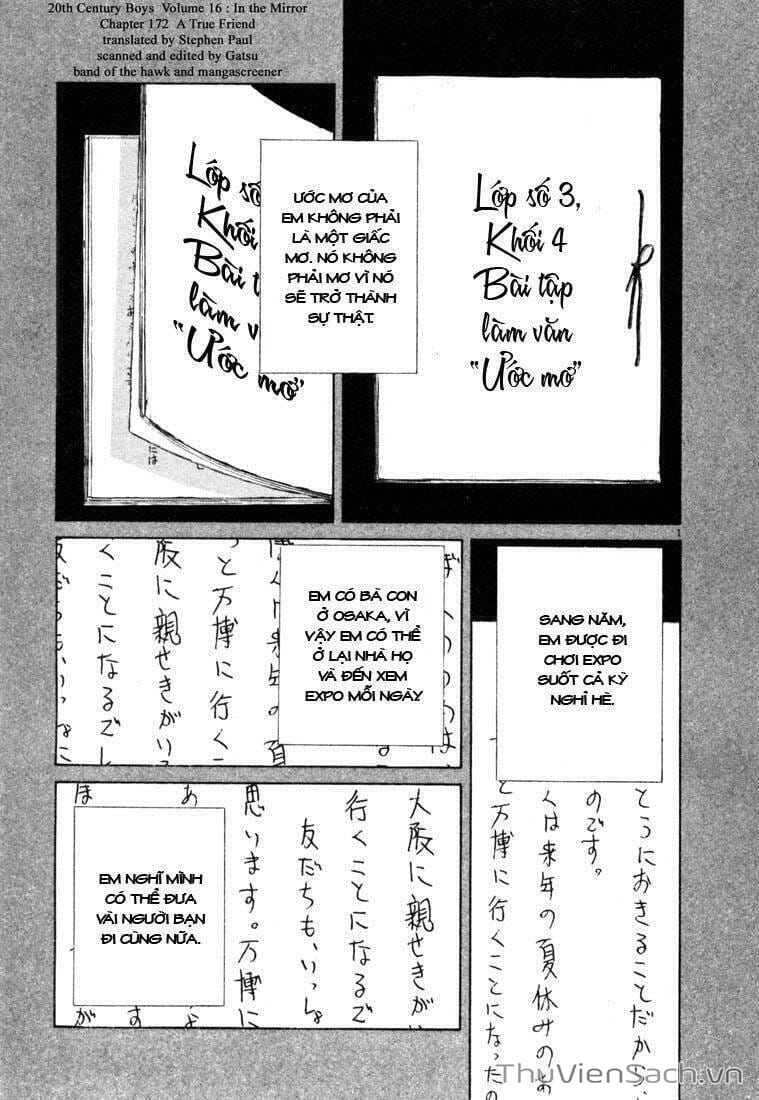 20th Century Boys Volume 16 : In the Mirror
Chapter 172 A True Friend
translated by Stephen Paul
scanned and edited by Gatsu
band of the hawk and mangascreener
Lớp số 3,
Khối 4
Bài tập
làm văn
"Ước mơ"
Lớp số
Khối
Bài
làm
"Ước mơ"
ƯỚC MƠ CỦA
EM KHÔNG PHẢI
LÀ MỘT GIẤC
MƠ. NÓ KHÔNG
PHẢI MƠ VÌ NÓ
SẼ TRỞ THÀNH
SỰ THẬT.
1
SANG NĂM,
EM ĐƯỢC ĐI
CHƠI EXPO
SUỐT CẢ KỲ
NGHỈ HÈ.
とうにおきることだから
のです。
くは来年の夏休みの
と万博に行くことになったの
EM CÓ BÀ CON
Ở OSAKA, VÌ
VẬY EM CÓ THỂ
Ở LẠI NHÀ HỌ
VÀ ĐẾN XEM
EXPO MỖI NGÀY.
っと万博に行く
阪に親せきがい
くことになるで
EM NGHĨ MÌNH
CÓ THỂ ĐƯA
VÀI NGƯỜI BẠN
ĐI CÙNG NỮA.
大阪に親せきがい
行くことになるで
友だちも、いっしょ
思います。万博に
ThuVienSach.vn